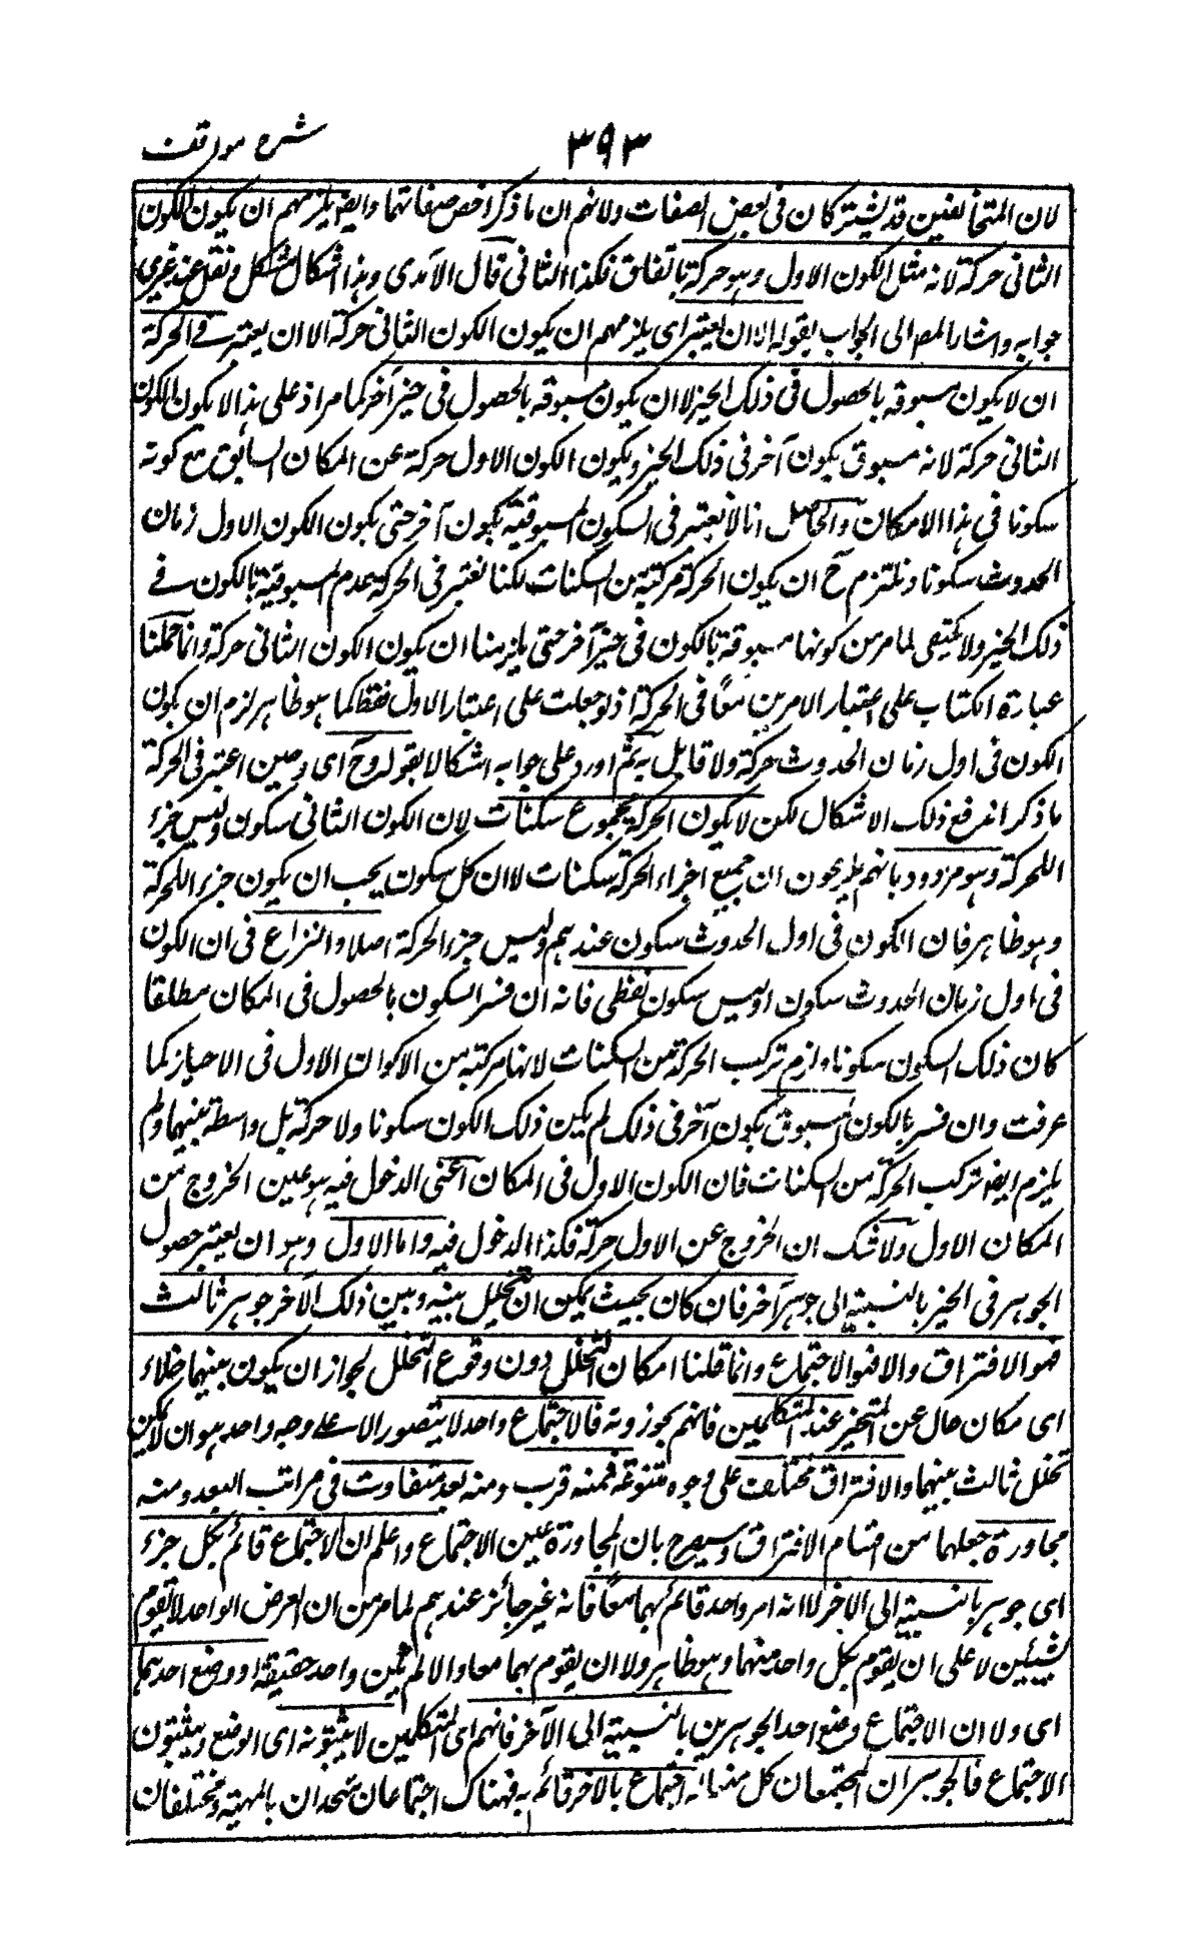 شرح مواقف
٣٩٣
لان المتخالفين قد يشتركان فى بعض الصفات ولانم ان ما ذكر اخص صفاتهما وايضا يلزمهم ان يكون الكون
الثانى حركة لانه مثل الكون الاول وهو حركة باتفاق فكذا الثانى قال الآمدى وهذا اشكال مشكل ونقل عند غيرى
جوابه واشار المصر الى الجواب بقوله الا ان يعتبر اى يلزمهم ان يكون الكون الثانى حركة الا ان يعتبر فے الحركة
ان لا يكون مسبوقه بالحصول فى ذلك الحيز لا ان يكون مسبوقه بالحصول فى حيز آخر كما مر اذ على هذا لا يكون الكون
الثانى حركة لانه مسبوق بكون آخر فى ذلك الحيز ويكون الكون الاول حركة عن المكان السابق مع كونه
سكونا فى هذا الامكان والحاصل انا لا نعتبر فى السكون المسبوقية بكون آخر حتى يكون الكون الاول زمان
الحدوث سكونا ونلتزم ح ان يكون الحركة مركبة من السكنات لكنا نعتبر فى الحركة عدم المسبوقية بالكون فے
ذلك الحيز ولا يكتفى لما مر من كونها مسبوقة بالكون فى حيز آخر حتى يلزمنا ان يكون الكون الثانى حركة وانما حملنا
عبارة الكتاب على اعتبار الامرين معًا فى الحركة اذ لو جعلت على اعتبار الاول فقط كما هو ظاهر لزم ان يكون
الكون فى اول زمان الحدوث حركة ولا قايل به ثم اورد على جوابه اشكالا بقوله وح اى وحين اعتبر فى الحركة
ما ذكر اندفع ذلك الاشكال لكن لا يكون الحركة مجموع سكنات لان الكون الثانى سكون وليس جزء
اللحركة وهو مردود بانهم يدعون ان جميع اجزاء الحركة سكنات لا ان كل سكون يجب ان يكون جزء اللحركة
وهو ظاهر فان الكون فى اول الحدوث سكون عندهم وليس جزء الحركة اصلا والنزاع فى ان الكون
فى اول زمان الحدوث سكون او ليس سكون لفظى فانه ان فسر السكون بالحصول فى المكان مطلقا
كان ذلك السكون سكونا ولزم تركب الحركة من السكنات لانها مركبة من الاكوان الاول فى الاحياز كما
عرفت وان فسر بالكون المسبوق بكون آخر فى ذلك لم يكن ذلك الكون سكونا ولا حركة بل واسطة بينهما ولم
يلزم ايضا تركب الحركة من السكنات فان الكون الاول فى المكان اعنى الدخول فيه هو عين الخروج من
المكان الاول ولا شك ان الخروج عن الاول حركة فكذا الدخول فيه واما الاول وهو ان يعتبر حصول
الجوهر فى الحيز بالنسبة الى جوهر آخر فان كان بحيث يمكن ان يتخلل بينه وبين ذلك الآخر جوهر ثالث
فهو الافتراق والا فهو الاجتماع وانما قلنا امكان التخلل دون وقوع التخلل لجواز ان يكون بينهما خلاء
اى مكان خال عن المتحيز عند المتكلمين فانهم يجوزونه فالاجتماع واحد لا يتصور الا على وجه واحد هو ان لا يمكن
تخلل ثالث بينهما والافتراق مختلف على وجوه متنوعة فمنه قرب ومنه بعد متفاوت فى مراتب البعد ومنه
مجاورة جعلها من اقسام الافتراق وسيصرح بان المجاورة عين الاجتماع واعلم ان الاجتماع قائم بكل جزء
اى جوهر بالنسبة الى الآخر لا انه امر واحد قائم بهما معًا فانه غير جائز عندهم لما مر من ان العرض الواحد لا يقوم
بشيئين لا على ان يقوم بكل واحد منهما وهو ظاهر ولا ان يقوم بهما معا والا لم يكن واحد حقيقة او وضع احدهما
اى ولا ان الاجتماع وضع احد الجوهرين بالنسبة الى الآخر فانهم اى المتكلمين لا يثبتونه اى الوضع ويثبتون
الاجتماع فالجوهران المجتمعان كل منهما له اجتماع بالآخر قائم به فهناك اجتماعان متحدان بالمهية ومختلفان